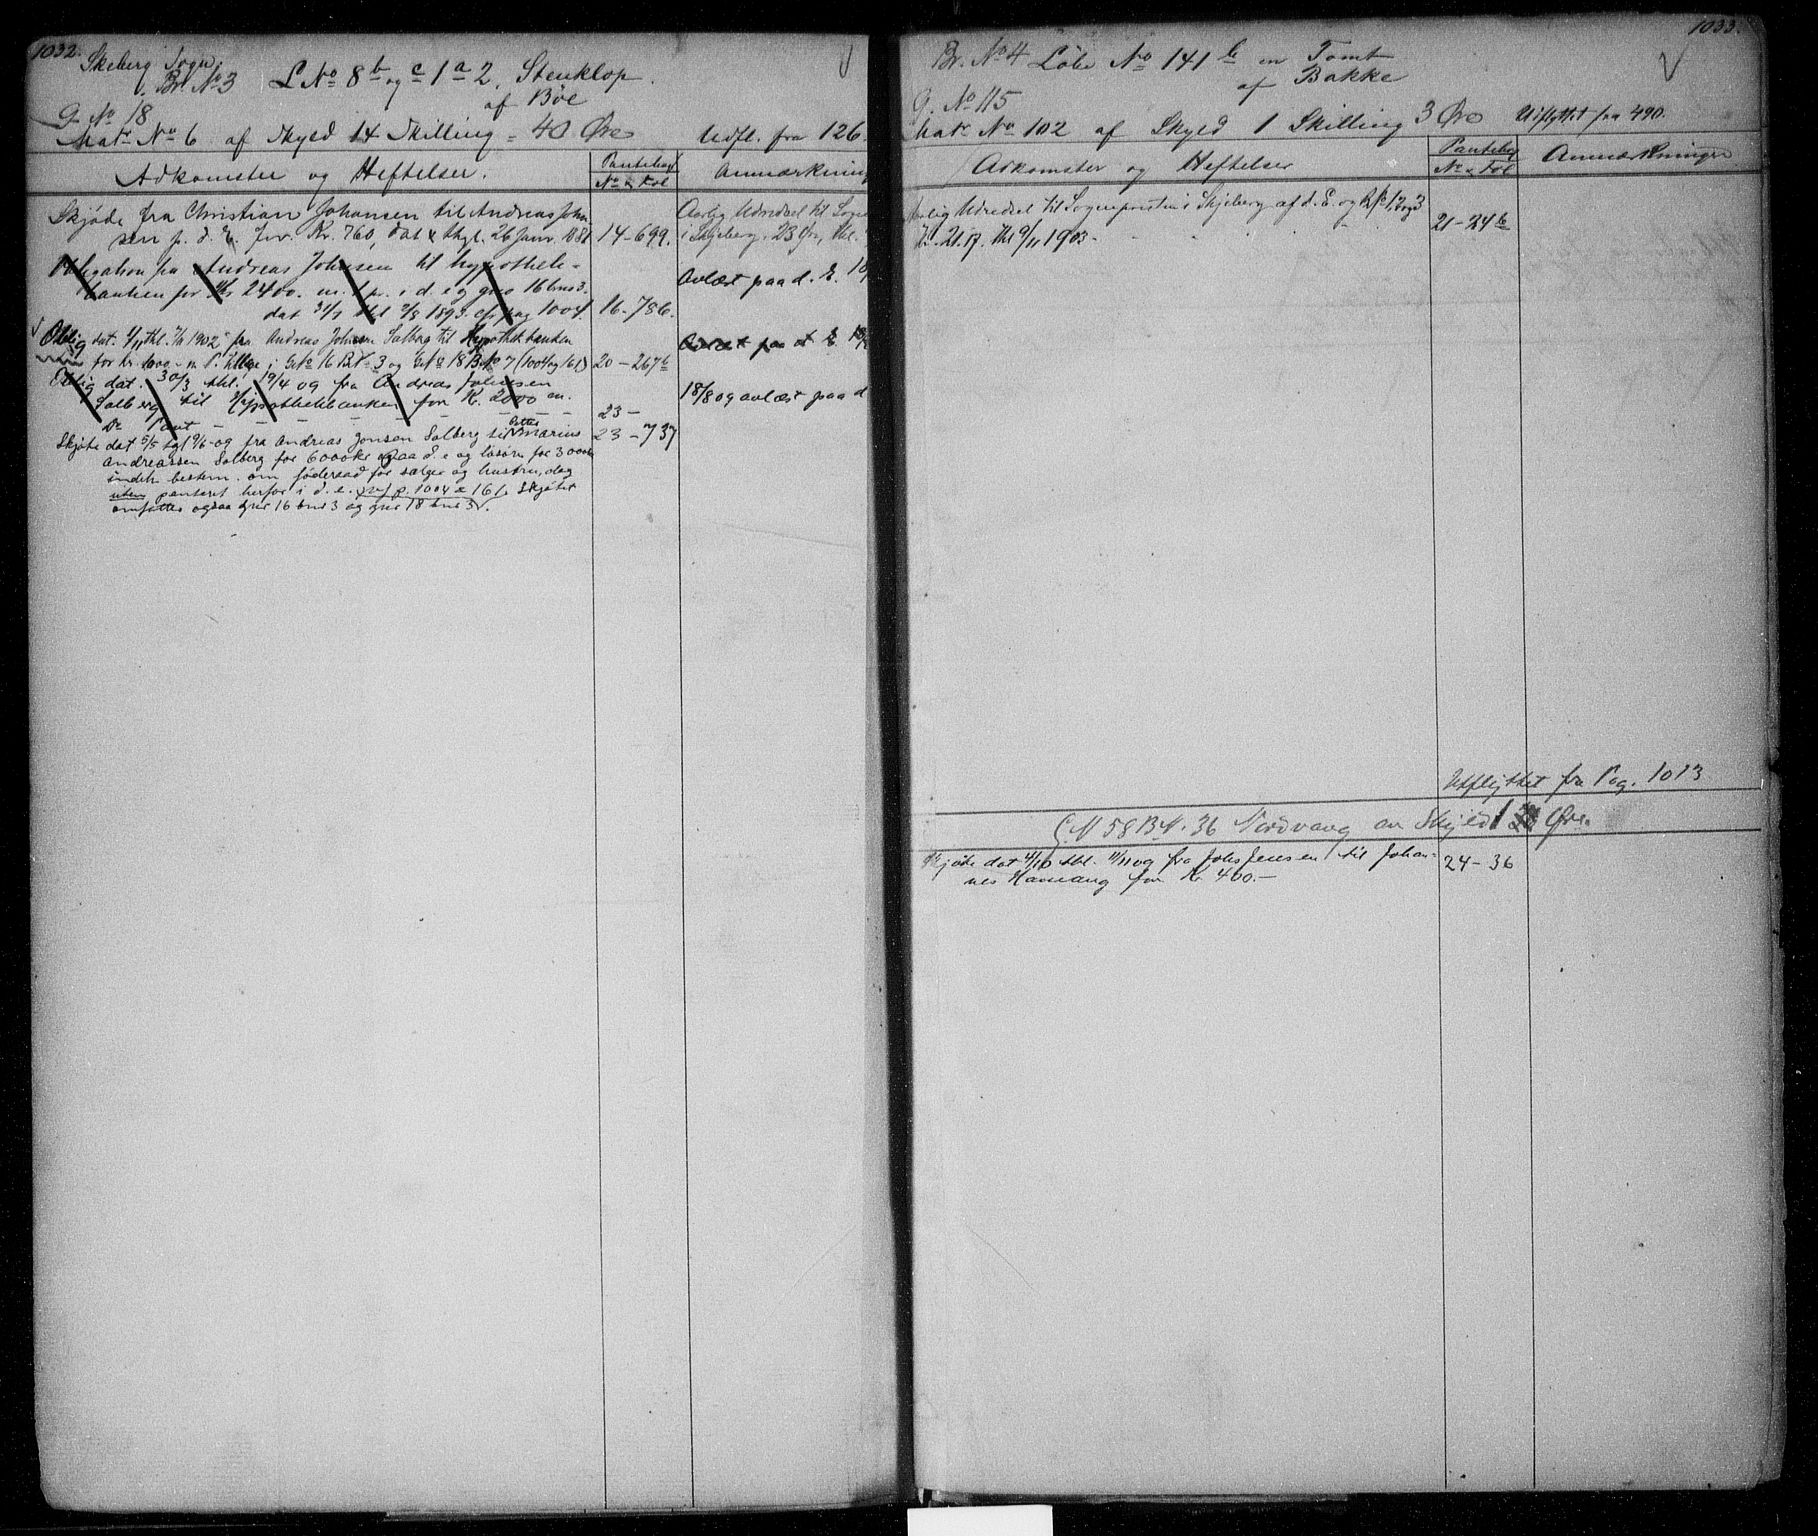 1032.
Skeberg Sogn.
Br. No 3 L No 8 b og c 1 a 2, Stenklop.
af Böe
G. No 18
Matr No 6 af Skyld 14 Skilling = 40 Øre Udfl. fra 126.
Adkomster og Heftelser. Pantebog No & Fol Anmærkning
Skjöde fra Christian Johansen til Andreas Johan
sen p. d. E. for Kr. 760, dat & thgl. 26 Janr. 1881 14-699.
Aarlig Udredsel til Sogne
i Skjeberg, 23 Øre, thl.
Obligation fra Andreas Johnsen til hypothek-
banken for Kr 2400. m. 1 pr. i d. e og gno 16 bno 3.
dat 31/7 thl 2/8 1893. cfr pag 1004. 16-786.
Avlæst paa d. E.
Oblig dat. 4/11 thl. 7/11 1902 fra Andreas Johnsen Solberg til Hypothekbanken
for Kr. 1000 - m P. tillige i G No 16 B No 3 og G No 18 B No 7 (1004 og 161) 20-267b
Avlæst paa d E.
Oblig dat. 30/3 thl. 19/4 09 fra Andreas Johnsen
Solberg til Hypothekbanken for K. 2000 m.
Do Pant - - - - - - 23-
18/8 09 avlæst paa d
Skjöte dat 5/5 tgl 9/6-09 fra Andreas Jonsen Solberg til Petter Marius 23-737
Andreassen Solberg for 6000 kr paa d. e og lösöre for 3000 kr
indeh bestem. om föderaad for sælger og hustru, dog
uten panteret herfor i d. e. cfr p. 1004 & 161. Skjötet
omfatter ogsaa gnr 16 bnr 3 og gnr 18 bnr 3.
1033.
Br. No 4 Löbe No 141 b en Tomt
af Bakke
G. No 115
Matr No 102 af Skyld 1 Skilling 3 Øre Udflyttet fra 490.
Adkomster og Heftelser Pantebog No & Fol Anmærkninger
Aarlig Udredsel til Sognepresten i Skjeberg af d. E. og
Kr. 21.17. thl 9/11 1903. 21-246
Utflyttet fra Pag. 1013
G. N 58 B N. 36 Nordvang av Skyld 1 Øre.
Skjöde dat 4/10 thl. 11/11 09 fra Johs Jensen til Johan- 24-36
nes Havnang for Kr. 400.-